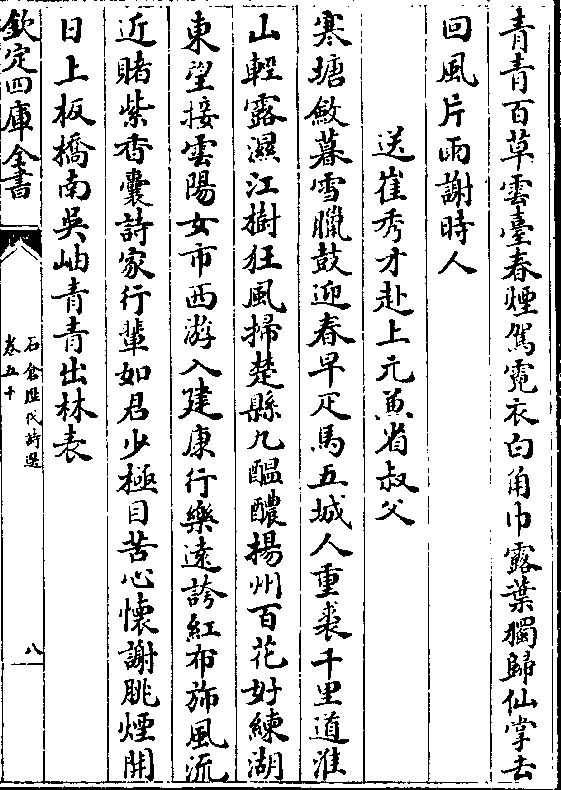 青青百草雲臺春煙駕霓衣白角巾露葉獨歸仙掌去
回風片雨謝時人
送崔秀才赴上元兼省叔父
寒塘斂暮雪臘鼓迎春早疋馬五城人重裘千里道淮
山輕露濕江樹狂風掃楚縣九醖醲揚州百花好練湖
東望接雲陽女市西游入建康行樂遠誇紅布旆風流
近賭紫香囊詩家行輩如君少極目苦心懷謝朓煙開
日上板橋南吳岫青青出林表
欽定四庫全書
石倉歴代詩選
卷五十
八